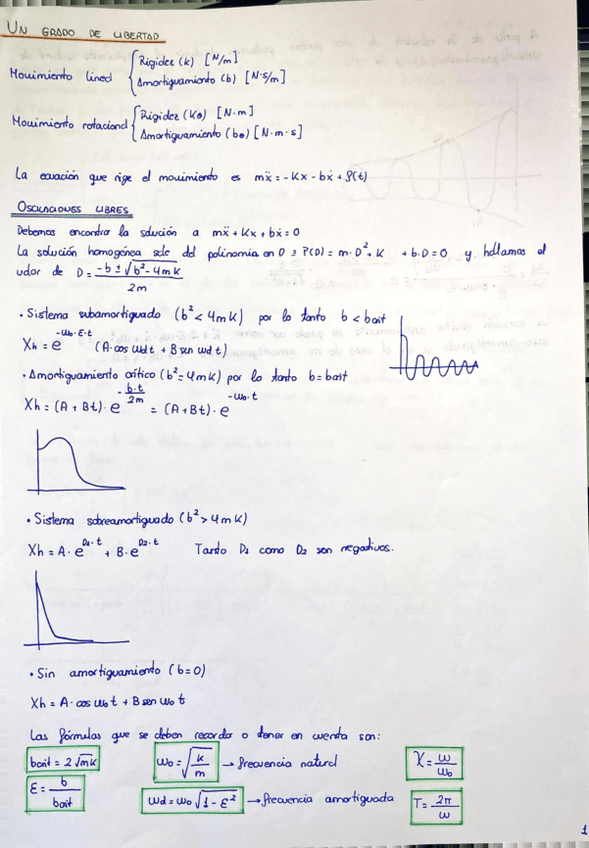 UN GRADO DE LIBERTAD
Movimiento lineal { Rigidez (k) [N/m]
Amortiguamiento (b) [N·s/m]
Movimiento rotacional { Rigidez (Kθ) [N·m]
Amortiguamiento (bθ) [N·m·s]
La ecuación que rige el movimiento es mẍ = -Kx - bẋ + f(t)
OSCILACIONES LIBRES
Debemos encontrar la solución a mẍ + Kx + bẋ = 0
La solución homogénea sale del polinomio en D : P(D) = m·D² + K + b·D = 0 y hallamos el
valor de D = (-b ± √(b² - 4mK)) / 2m
· Sistema subamortiguado (b² < 4mK) por lo tanto b < bcrit
Xh = e^(-ωo·ε·t) (A·cos ωd t + B sen ωd t)
· Amortiguamiento crítico (b² = 4mK) por lo tanto b = bcrit
Xh = (A + Bt)·e^(-b·t/2m) = (A + Bt)·e^(-ωo·t)
· Sistema sobreamortiguado (b² > 4mK)
Xh = A·e^(D1·t) + B·e^(D2·t) Tanto D1 como D2 son negativos.
· Sin amortiguamiento (b=0)
Xh = A·cos ωo t + B sen ωo t
Las fórmulas que se deben recordar o tener en cuenta son:
bcrit = 2√mK ωo = √(k/m) → frecuencia natural X = ω/ωo
ε = b/bcrit ωd = ωo √(1 - ε²) → frecuencia amortiguada T = 2π/ω
1